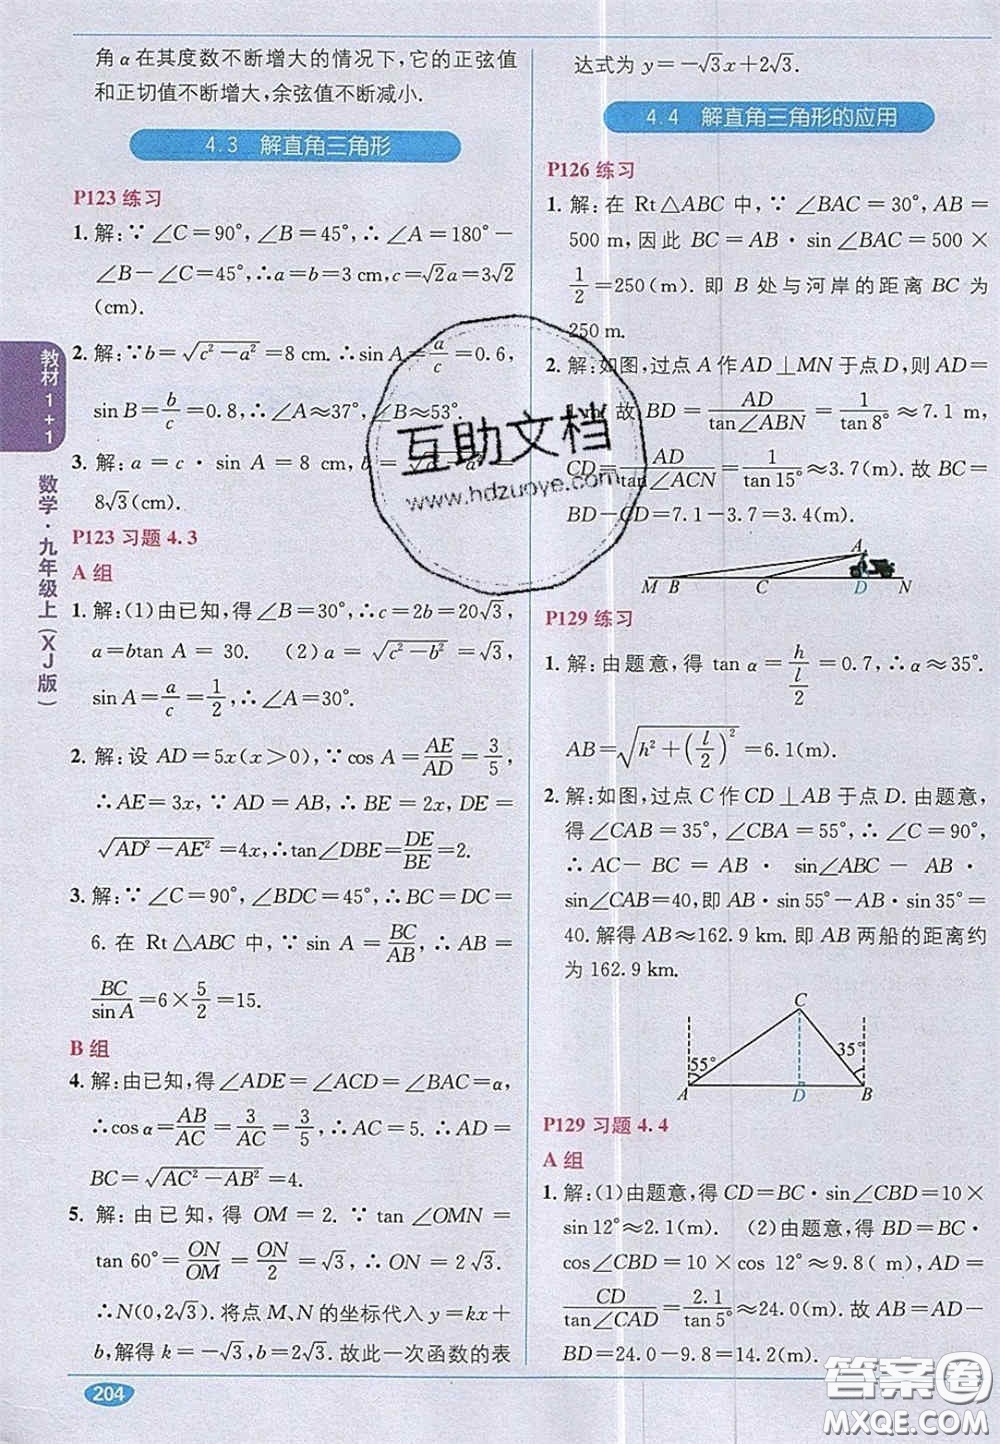 角α在其度数不断增大的情况下,它的正弦值
和正切值不断增大,余弦值不断减小.
4.3 解直角三角形
P123 练习
1. 解:∵∠C=90°,∠B=45°,∴∠A=180°-
∠B-∠C=45°,∴a=b=3 cm,c=√2a=3√2
(cm).
2. 解:∵b=√(c²-a²)=8 cm.∴sin A=a/c=0.6,
sin B=b/c=0.8.∴∠A≈37°,∠B≈53°.
3. 解:a=c·sin A=8
8√3(cm).
P123 习题 4.3
A 组
1. 解:(1)由已知,得∠B=30°,∴c=2b=20√3,
a=btan A=30. (2)a=√(c²-b²)=√3,
sin A=a/c=1/2,∴∠A=30°.
2. 解:设 AD=5x(x>0),∵cos A=AE/AD=3/5,
∴AE=3x,∵AD=AB,∴BE=2x,DE=
√(AD²-AE²)=4x,∴tan∠DBE=DE/BE=2.
3. 解:∵∠C=90°,∠BDC=45°,∴BC=DC=
6. 在 Rt△ABC 中,∵sin A=BC/AB,∴AB=
BC/sin A=6×5/2=15.
B 组
4. 解:由已知,得∠ADE=∠ACD=∠BAC=α,
∴cos α=AB/AC=3/AC=3/5,∴AC=5.∴AD=
BC=√(AC²-AB²)=4.
5. 解:由已知,得 OM=2.∵tan∠OMN=
tan 60°=ON/OM=ON/2=√3,∴ON=2√3.
∴N(0,2√3).将点 M、N 的坐标代入 y=kx+
b,解得 k=-√3,b=2√3.故此一次函数的表
达式为 y=-√3x+2√3.
4.4 解直角三角形的应用
P126 练习
1. 解:在 Rt△ABC 中,∵∠BAC=30°,AB=
500 m,因此 BC=AB·sin∠BAC=500×
1/2=250(m).即 B 处与河岸的距离 BC 为
250 m.
2. 解:如图,过点 A 作 AD⊥MN 于点 D,则 AD=
故 BD=AD/tan∠ABN=1/tan 8°≈7.1 m,
CD=AD/tan∠ACN=1/tan 15°≈3.7(m).故 BC=
BD-CD=7.1-3.7=3.4(m).
A
M B C D N
P129 练习
1. 解:由题意,得 tan α=h/(l/2)=0.7,∴α≈35°.
AB=√(h²+(l/2)²)=6.1(m).
2. 解:如图,过点 C 作 CD⊥AB 于点 D.由题意,
得∠CAB=35°,∠CBA=55°,∴∠C=90°,
∴AC-BC=AB·sin∠ABC-AB·
sin∠CAB=40,即 AB·sin 55°-AB·sin 35°=
40.解得 AB≈162.9 km.即 AB 两船的距离约
为 162.9 km.
C
55° 35°
A D B
P129 习题 4.4
A 组
1. 解:(1)由题意,得 CD=BC·sin∠CBD=10×
sin 12°≈2.1(m). (2)由题意,得 BD=BC·
cos∠CBD=10×cos 12°≈9.8(m),AD=
CD/tan∠CAD=2.1/tan 5°≈24.0(m).故 AB=AD-
BD=24.0-9.8=14.2(m).
教材1+1
数学·九年级上(XJ版)
204
互助文档
www.hdzuoye.com
答案圈
MXQE.COM